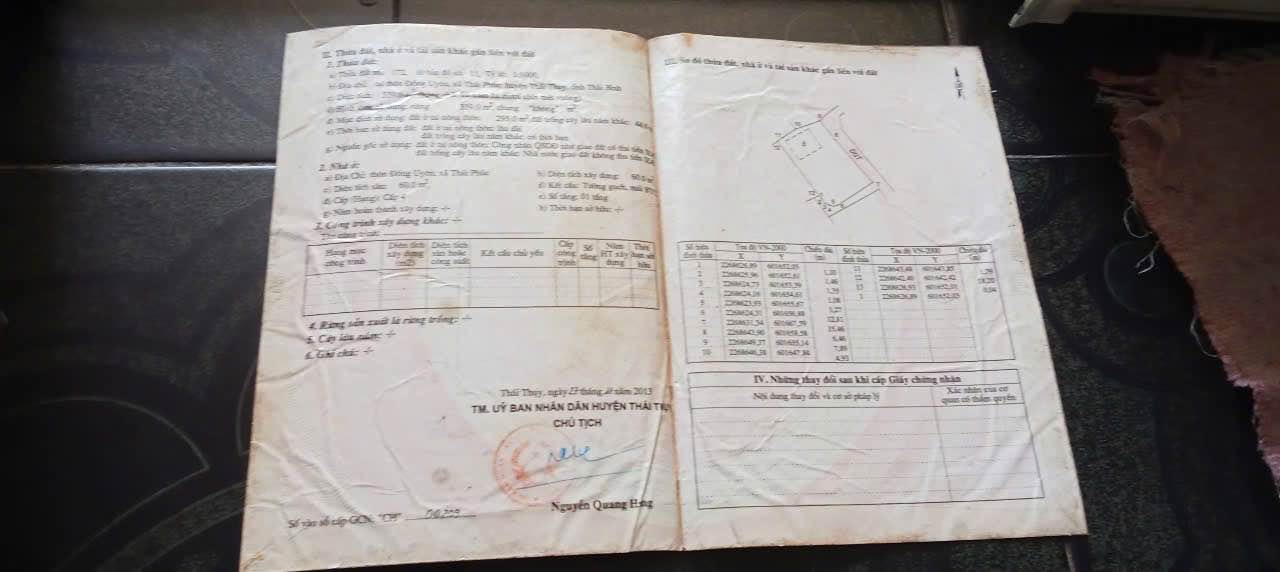 II. Thửa đất, nhà ở và tài sản khác gắn liền với đất
1. Thửa đất:
a) Thửa đất số: 172, tờ bản đồ số: 11, Tỷ lệ: 1:1000
b) Địa chỉ: tại thôn Đông Uyên, xã Thái Phúc, huyện Thái Thụy, tỉnh Thái Bình
c) Diện tích:
"không" m²
d) Mục đích sử dụng: đất ở tại nông thôn: 295.0 m², đất trồng cây lâu năm khác:
e) Thời hạn sử dụng đất: đất ở tại nông thôn: lâu dài
đất trồng cây lâu năm khác: có thời hạn
g) Nguồn gốc sử dụng: đất ở tại nông thôn: Công nhận QSDĐ như giao đất có thu tiền
đất trồng cây lâu năm khác: Nhà nước giao đất không thu tiền
2. Nhà ở:
a) Địa Chỉ: thôn Đông Uyên, xã Thái Phúc
b) Diện tích xây dựng: 60.0 m²
c) Diện tích sàn: 60.0 m²
d) Kết cấu: Tường gạch, mái
đ) Cấp (Hạng): Cấp 4
e) Số tầng: 01 tầng
g) Năm hoàn thành xây dựng: -/-
h) Thời hạn sở hữu: -/-
3. Công trình xây dựng khác: -/-
Tên công trình:
Hạng mục công trình
Diện tích xây dựng (m2)
Diện tích sàn hoặc công suất
Kết cấu chủ yếu
Cấp công trình
Số tầng
Năm HT xây dựng
Thời hạn sở hữu
4. Rừng sản xuất là rừng trồng: -/-
5. Cây lâu năm: -/-
6. Ghi chú: -/-
Thái Thụy, ngày tháng năm 2013
TM. UỶ BAN NHÂN DÂN HUYỆN THÁI THỤY
CHỦ TỊCH
Nguyễn Quang Hưng
Số vào sổ cấp GCN: "CH"
III. Sơ đồ thửa đất, nhà ở và tài sản khác gắn liền với đất
ĐGT
Số hiệu đỉnh thửa
Tọa độ VN-2000
Chiều dài (m)
Số hiệu đỉnh thửa
Tọa độ VN-2000
Chiều dài (m)
X Y X Y
1 2268626,89 601652,03 11 2268643,48 601643,85
2 2268625,96 601652,61 12 2268642,40 601642,42
3 2268624,73 601653,39 13 2268626,93 601652,01
4 2268624,16 601654,61 1 2268626,89 601652,03
5 2268623,93 601655,67
6 2268624,31 601656,88
7 2268631,54 601667,59
8 2268643,90 601658,58
9 2268649,37 601655,14
10 2268646,38 601647,84
1,10
1,46
1,35
1,08
1,27
12,92
15,46
6,46
7,89
4,93
1,79
18,20
0,04
IV. Những thay đổi sau khi cấp Giấy chứng nhận
Nội dung thay đổi và cơ sở pháp lý
Xác nhận của cơ quan có thẩm quyền